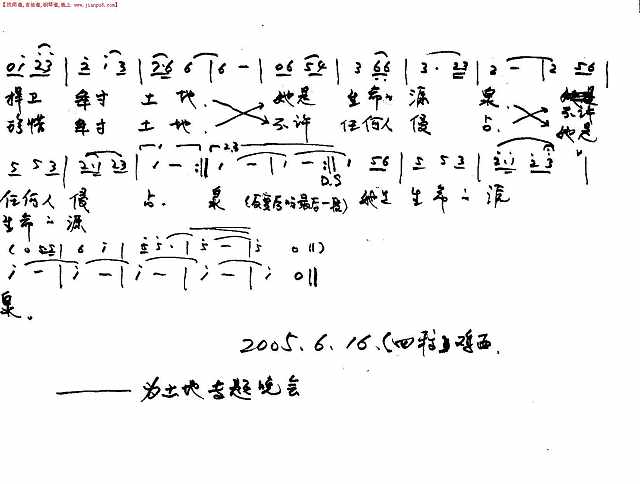 【找网谱,吉他谱,钢琴谱,就上 www.jianpu8.com】
0i 23 | 2 i 3 | 2·6 6 | 6 - | 06 54 | 3 66 | 3· 23 | 2 - | 2 56 |
捍卫 每寸 土地. 她是 生命的 源 泉.
珍惜 每寸 土地. 不许 任何人 侵 占. 不许 她是
5 5 3 | 2·1 23 | 1 - :|| 1 - | 1 - :|| 1 56 | 5 5 3 | 2·1 23 |
D.S
任何人 侵 占. 泉 她是 生命的 源
生命的 源
(0 55 | 6 i | 5 5· | 5 - | 5 0 ||)
i - | i - | i - | i - | i 0 ||
泉。
2005.6.16.(四稿)鸡西.
—— 为土地专题晚会